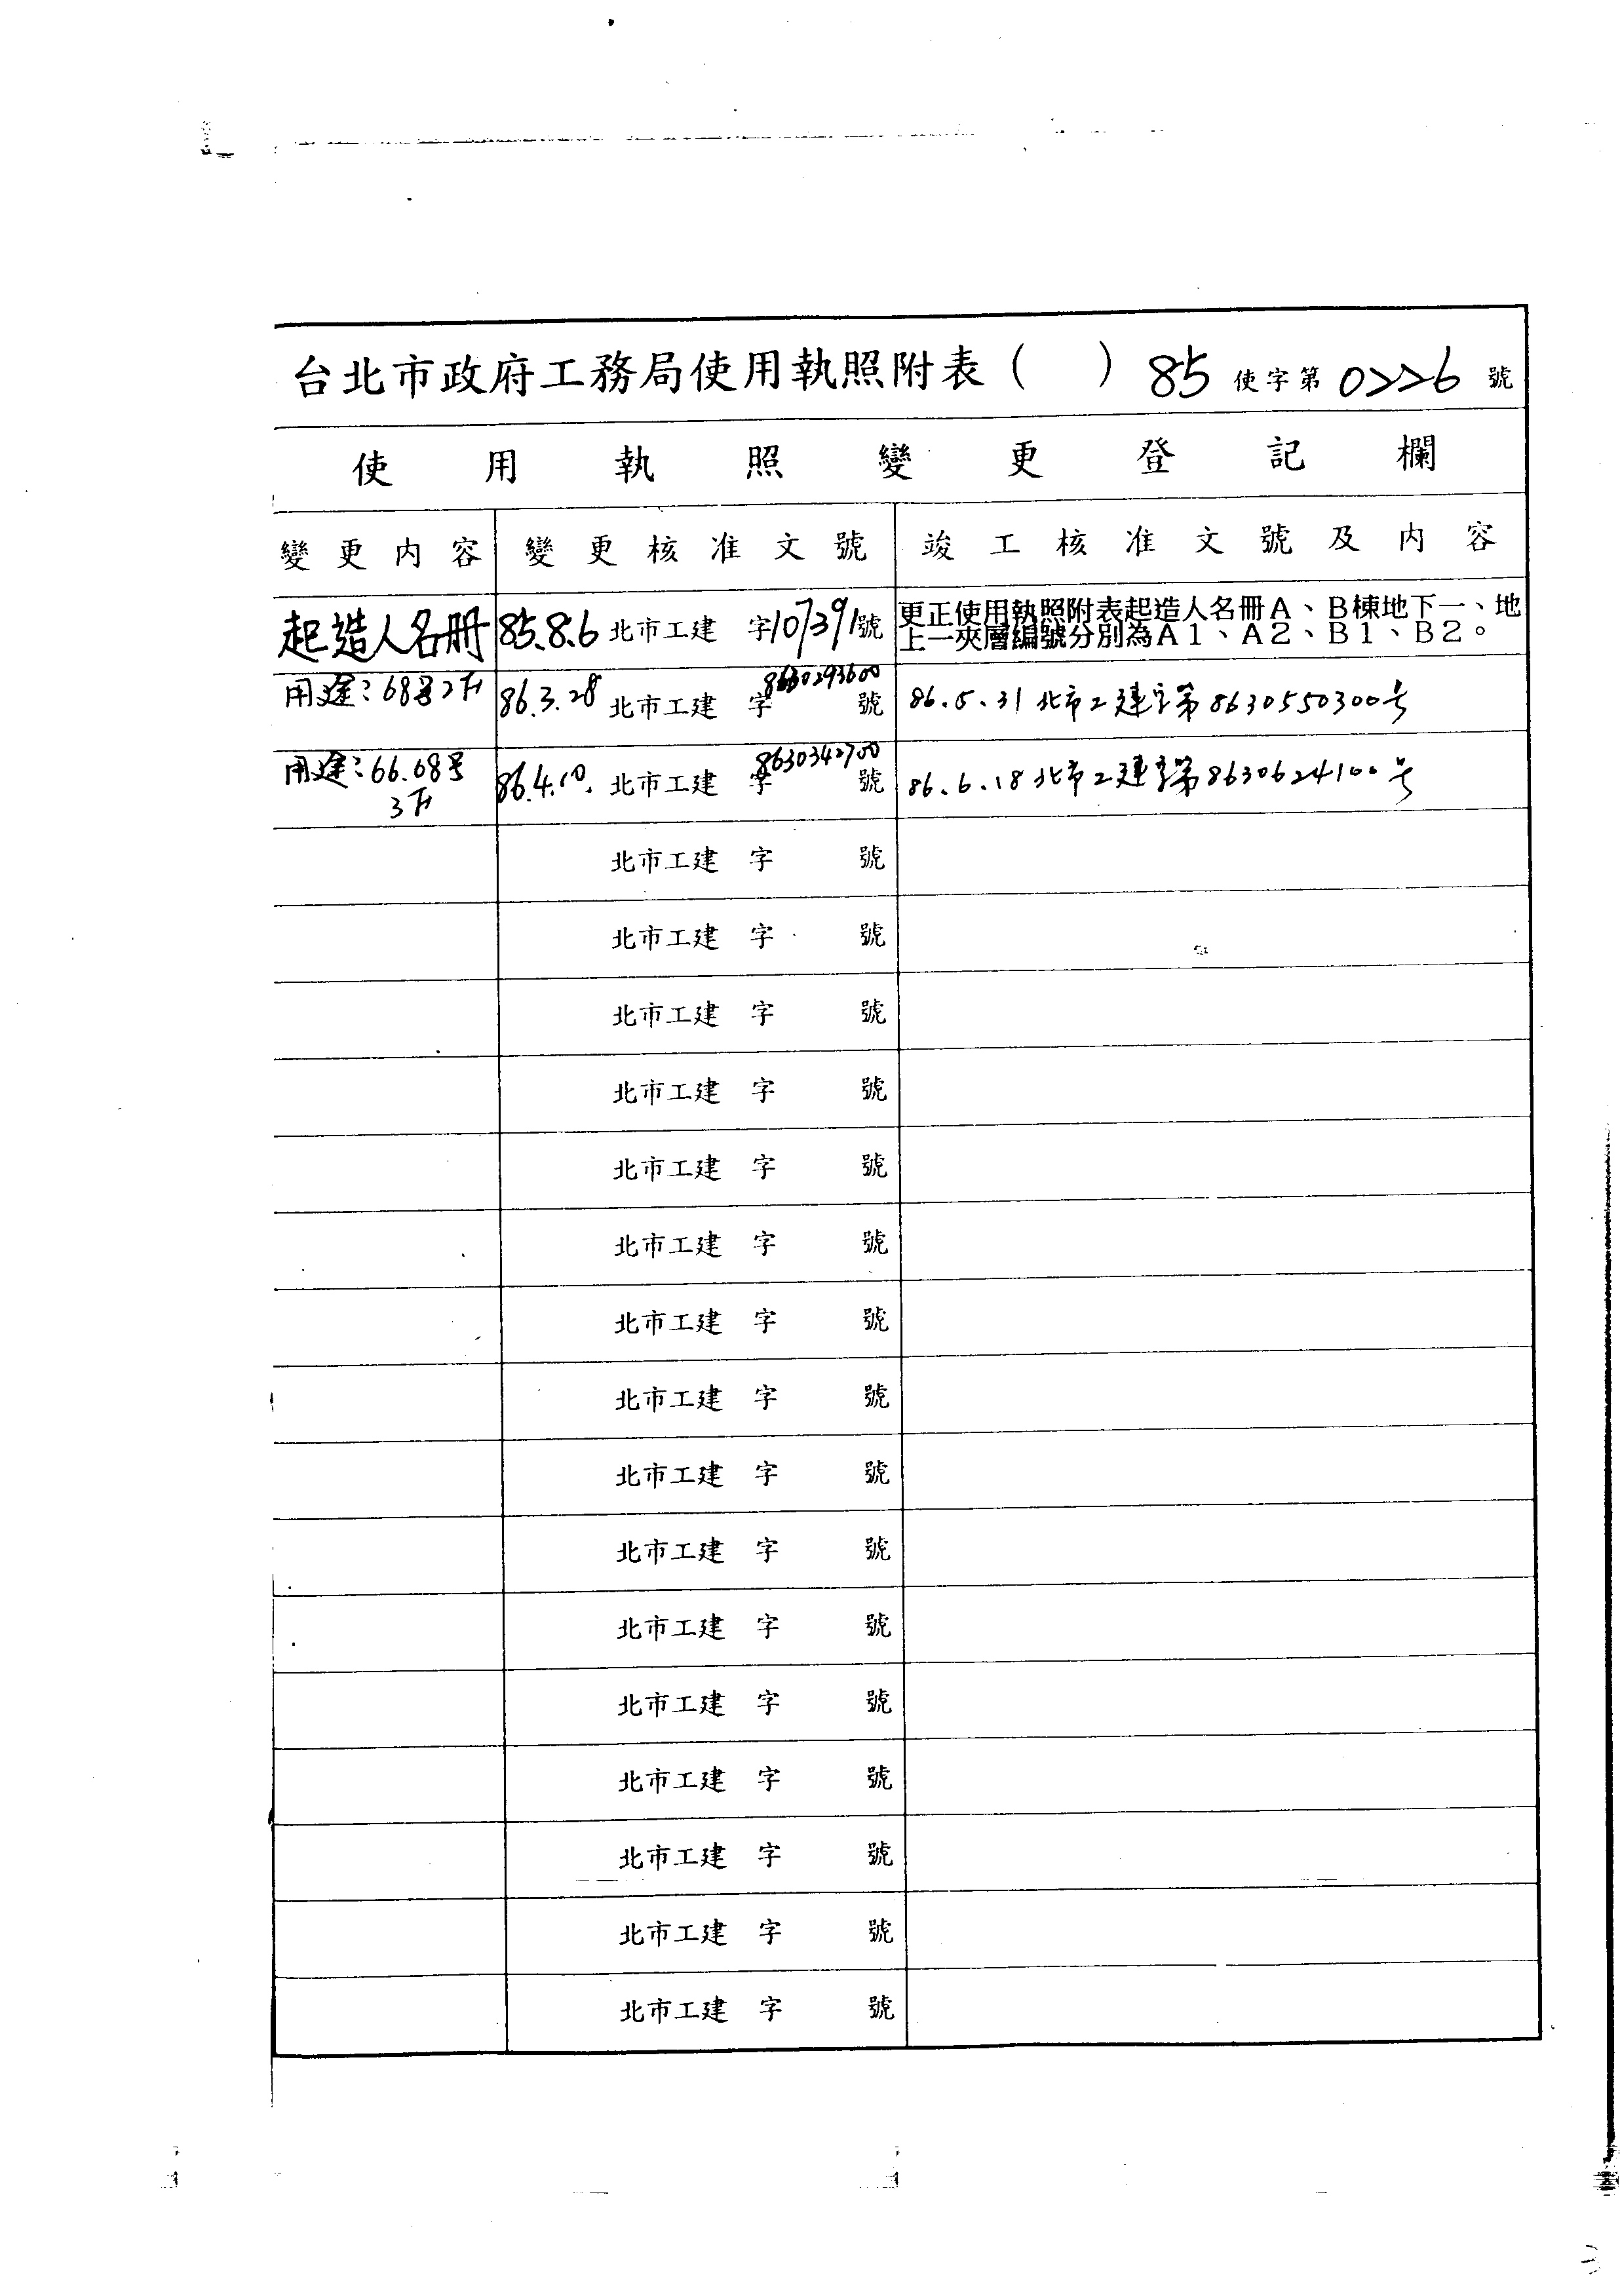 台北市政府工務局使用執照附表（　）85使字第0226號
使用執照變更登記欄
變更內容 變更核准文號 竣工核准文號及內容
起造人名冊 85.8.6 北市工建 字107391號 更正使用執照附表起造人名冊A、B棟地下一、地
上一夾層編號分別為A1、A2、B1、B2。
用途:68号2F 86.3.28 北市工建 字8630293600號 86.5.31北市工建字第8630550300号
用途:66.68号 86.4.10. 北市工建 字8630342700號 86.6.18北市工建字第8630624100号
3F
北市工建 字 號
北市工建 字 號
北市工建 字 號
北市工建 字 號
北市工建 字 號
北市工建 字 號
北市工建 字 號
北市工建 字 號
北市工建 字 號
北市工建 字 號
北市工建 字 號
北市工建 字 號
北市工建 字 號
北市工建 字 號
北市工建 字 號
北市工建 字 號